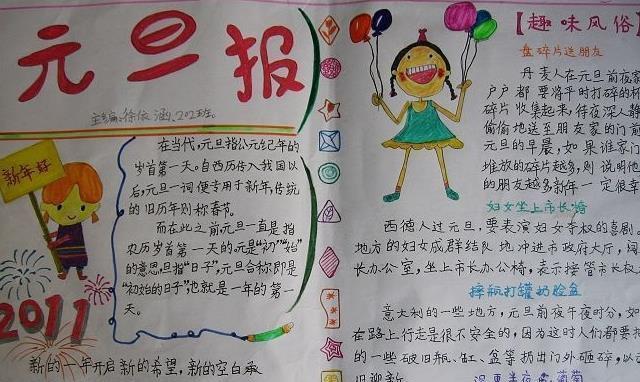 元旦报
主编：徐依涵、202班。
新年好
在当代，元旦指公元纪年的
岁首第一天。自西历传入我国以
后，元旦一词便专用于新年，传统
的旧历年则称春节。
而在此之前元旦一直是指
农历岁首第一天的。元是“初”“始”
的意思，旦指“日子”，元旦合称即是
“初始的日子”，也就是一年的第一
天。
2011
新的一年开启新的希望，新的空白承
【趣味风俗
盘碎片送朋友
丹麦人在元旦前夜家
户户都要将平时打碎的杯
碎片收集起来，待夜深人静
偷偷地送至朋友家的门前
元旦的早晨，如果谁家门
堆放的碎片越多，则说明他
的朋友越多新年一定很幸
妇女坐上市长椅
西德人过元旦，要表演妇女夺权的喜剧。
地方的妇女成群结队地冲进市政府大厅，闯
长办公室，坐上市长办公椅，表示接管市长权
摔瓶打罐扔脸盆
意大利的一些地方，元旦前夜午夜时分，如
在路上行走是很不安全的，因为这时人们都要
的一些破旧瓶、缸、盆等扔出门外砸碎，以
旧迎新